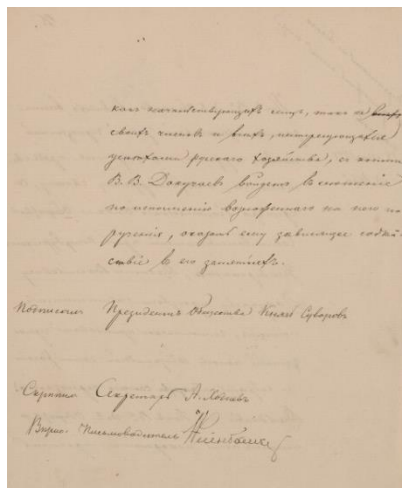 какъ начальствующихъ лицъ, такъ и
своихъ членовъ и всѣхъ, интересующихся
успѣхами русскаго хозяйства, съ коими
В. В. Докучаевъ войдетъ въ сношеніе
по исполненію возложеннаго на него по-
рученія, оказать ему зависящее содѣй-
ствіе въ его занятіяхъ.
Подписалъ Президентъ Общества Князь Суворовъ
Скрѣпилъ Секретарь А. Ходневъ
Вѣрно: Письмоводитель